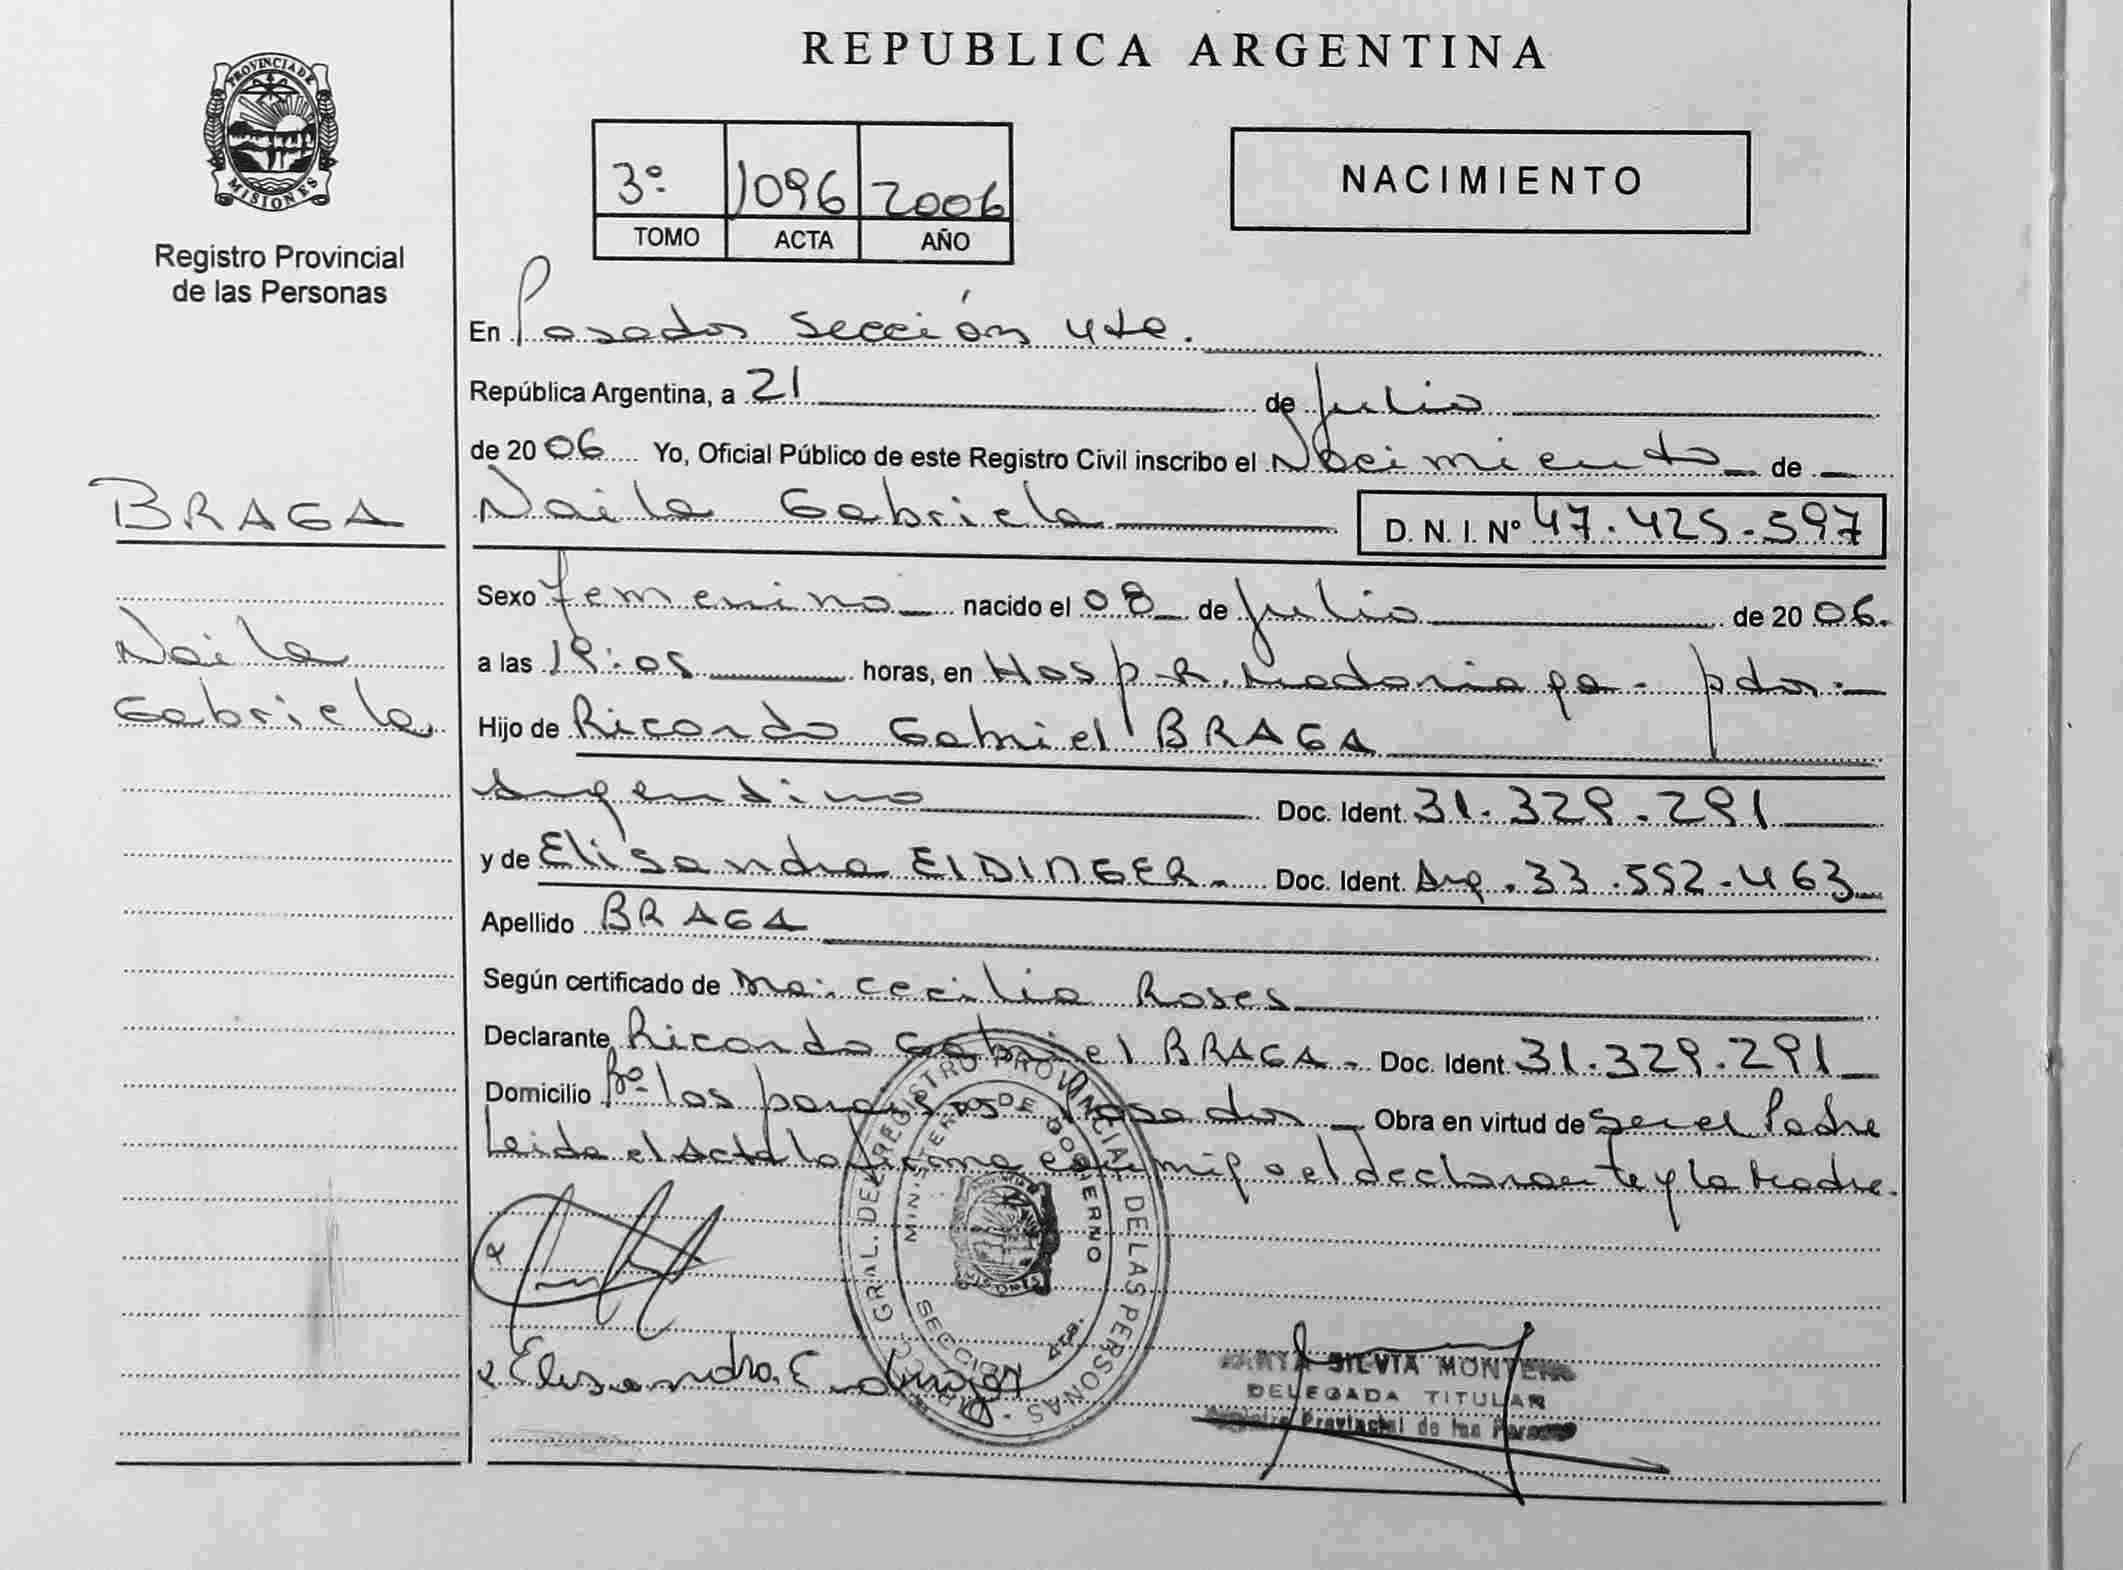 REPUBLICA ARGENTINA
PROVINCIA DE MISIONES
Registro Provincial
de las Personas
3º 1096 2006
TOMO ACTA AÑO
NACIMIENTO
En Posadas Sección 4ta.
República Argentina, a 21 de Julio
de 2006 Yo, Oficial Público de este Registro Civil inscribo el Nacimiento de
BRAGA
Naila Gabriela D. N. I. Nº 47.425.597
Sexo femenino nacido el 08 de Julio de 2006.
Naila
Gabriela
a las 19:05 horas, en Hosp. R. Madariaga - pdas.
Hijo de Ricardo Gabriel BRAGA
Argentino Doc. Ident. 31.329.291
y de Elisandra EIDINGER. Doc. Ident. Arg. 33.552.463
Apellido BRAGA
Según certificado de Ma. Cecilia Roses
Declarante Ricardo Gabriel BRAGA - Doc. Ident. 31.329.291
Domicilio Bº Los Posadas Obra en virtud de ser el Padre
Leida el Acta la firma conmigo el declarante y la Madre.
DIRECC. GRAL. DEL REGISTRO PROVINCIAL DE LAS PERSONAS
MINISTERIO DE GOBIERNO
MISIONES
SECCION 4ta.
Elisandra
SILVIA
DELEGADA TITULAR
Provincial de las